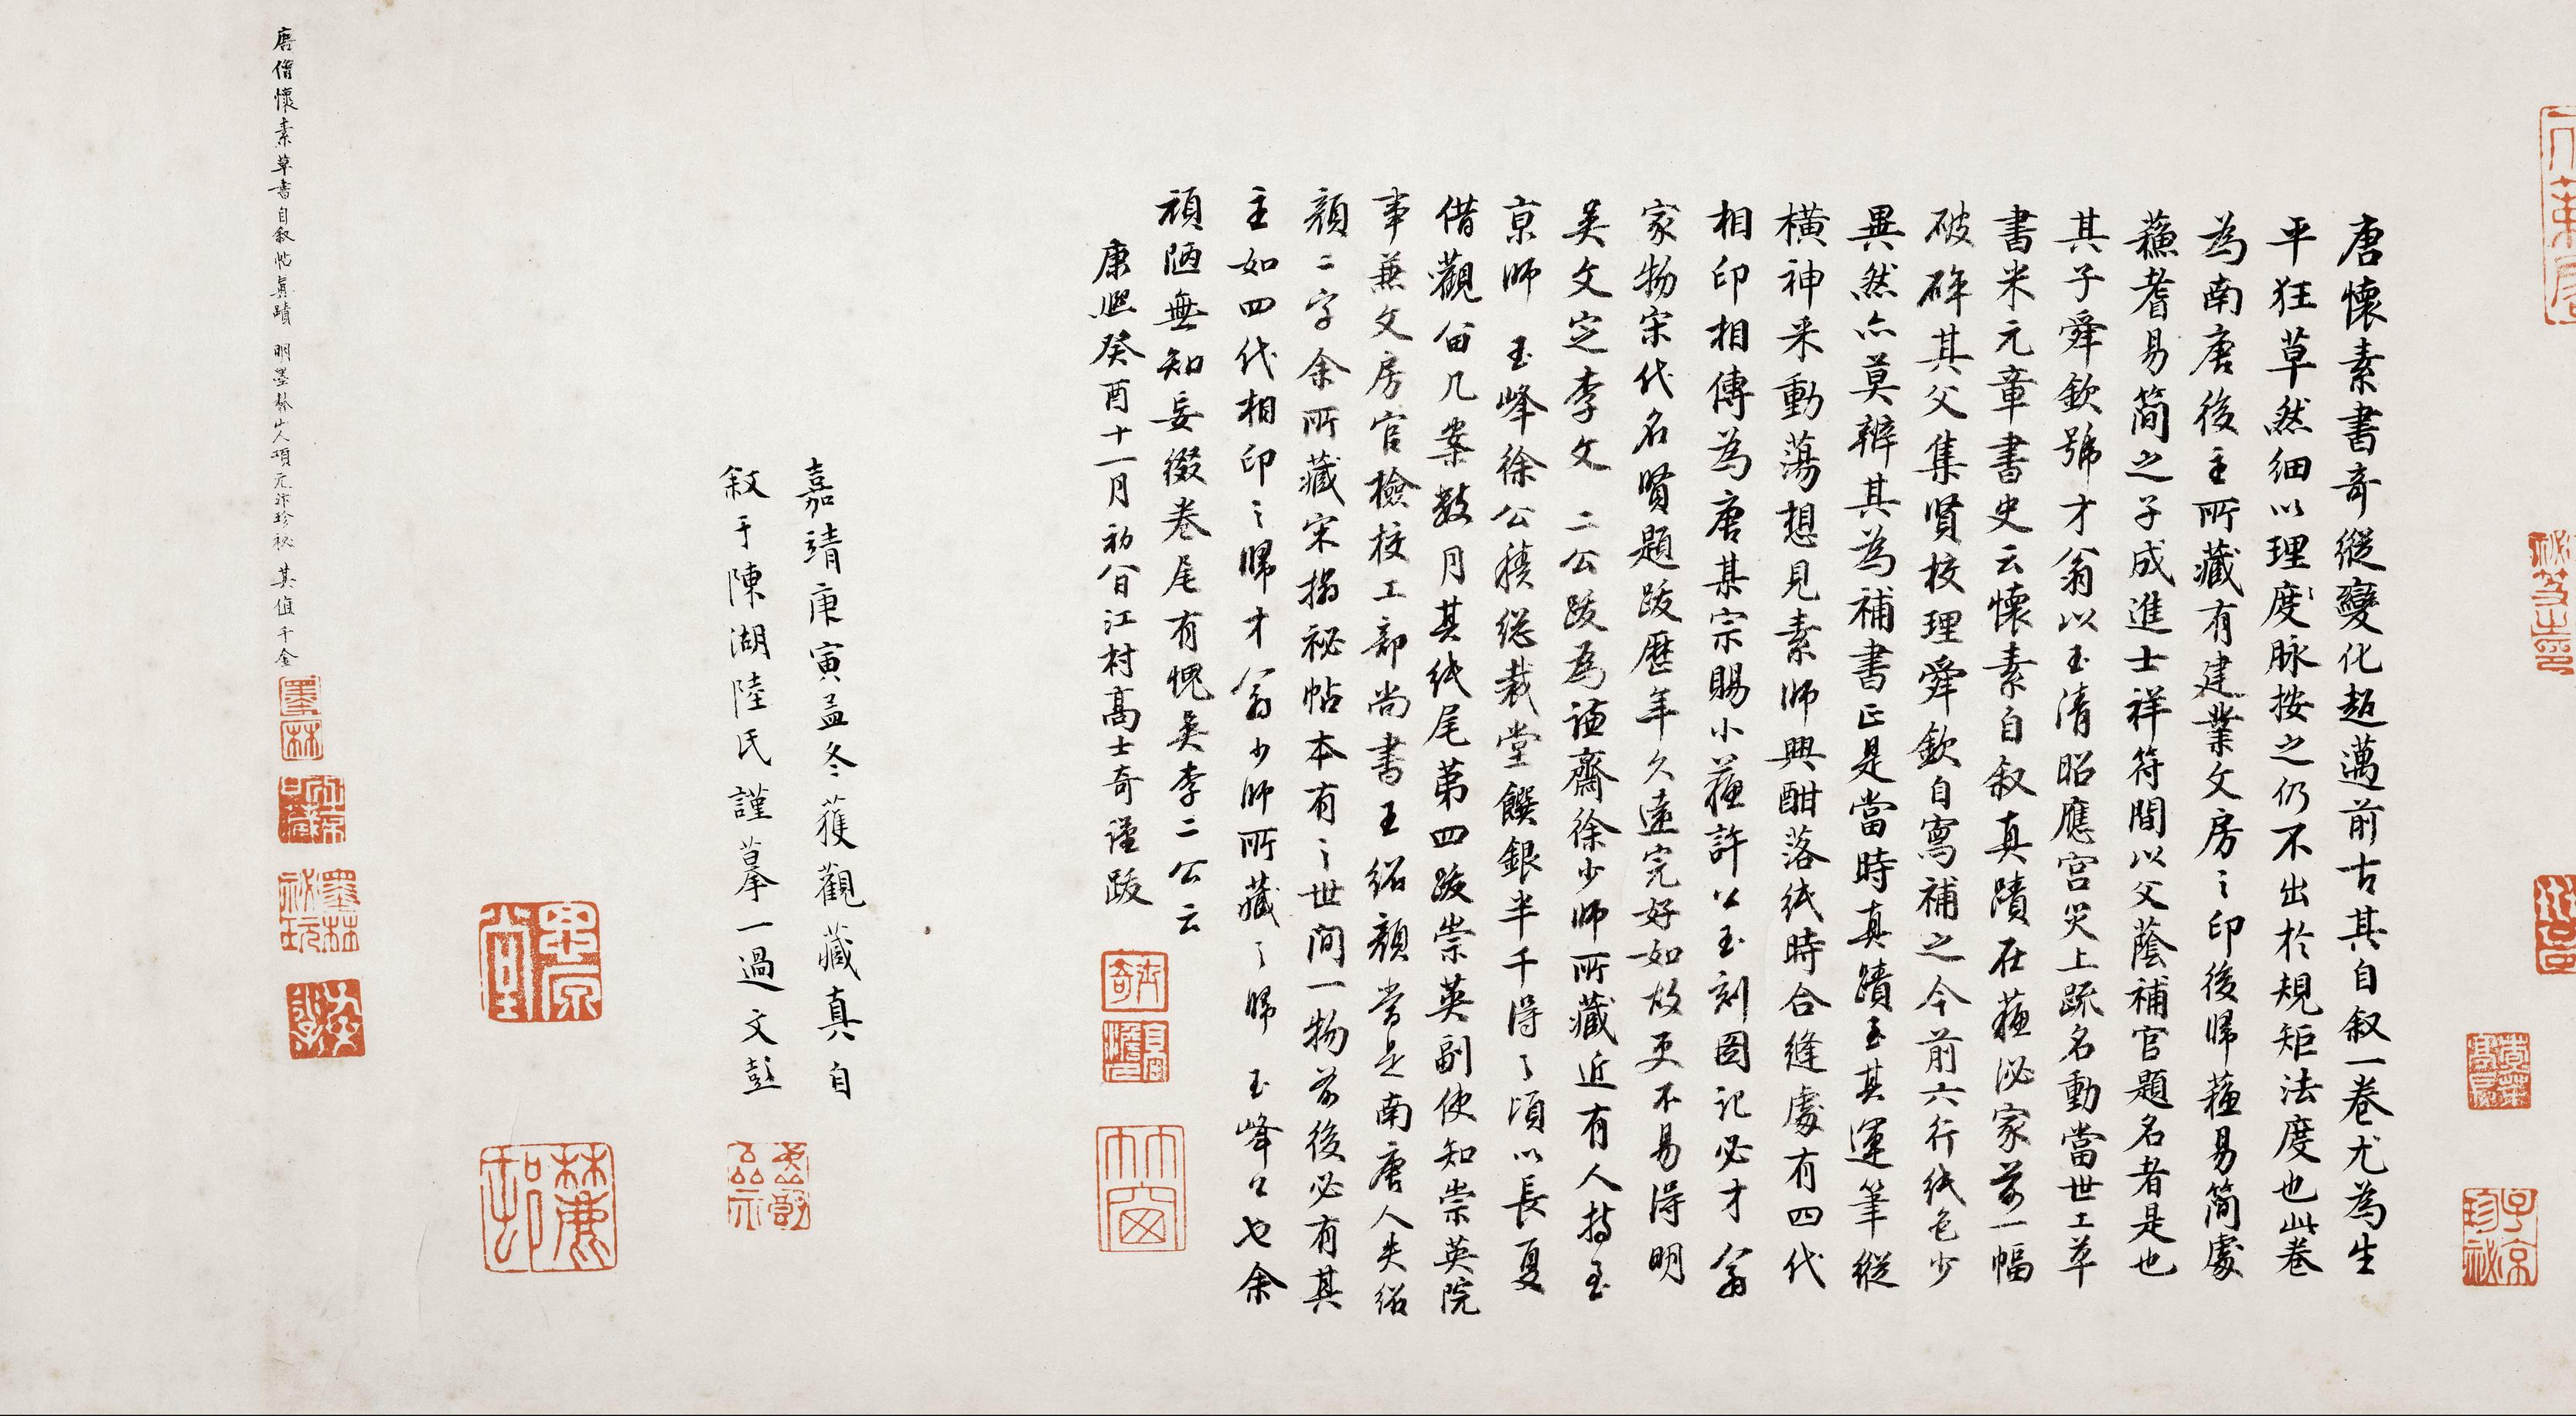 唐懷素書奇縱變化超邁前古其自叙一卷尤為生
平狂草然細以理度脉按之仍不出於規矩法度也此卷
為南唐後主所藏有建業文房之印後歸蘓易簡處
蘓耆易簡之子成進士祥符間以父蔭補官題名者是也
其子舜欽號才翁以玉清昭應宮災上疏名動當世工草
書米元章書史云懷素自叙真蹟在蘓泌家前一幅
破碎其父集賢校理舜欽自寫補之今前六行紙色少
異然亦莫辨其為補書正是當時真蹟至其運筆縱
橫神采動蕩想見素師興酣落紙時合縫處有四代
相印相傳為唐某宗賜小蘓許公玉刻圖記必才翁
家物宋代名賢題跋歷年久遠完好如故更不易得明
吳文定李文二公跋為謙齋徐少師所藏近有人持至
京師 玉峰徐公積總裁堂饌銀半千得之頃以長夏
借觀留几案數月其紙尾第四跋崇英副使知崇英院
事兼文房官檢校工部尚書王紹顏當是南唐人失紹
顏二字余所藏宋搨祕帖本有之世間一物前後必有其
主如四代相印之歸才翁少師所藏之歸 玉峰公也余
頑陋無知妄綴卷尾有愧吳李二公云
康熙癸酉十一月初八日江村高士奇謹跋
嘉靖庚寅孟冬獲觀藏真自
叙于陳湖陸氏謹摹一過文彭
唐僧懷素草書自叙帖真蹟 明墨林山人項元汴珍祕 其值千金